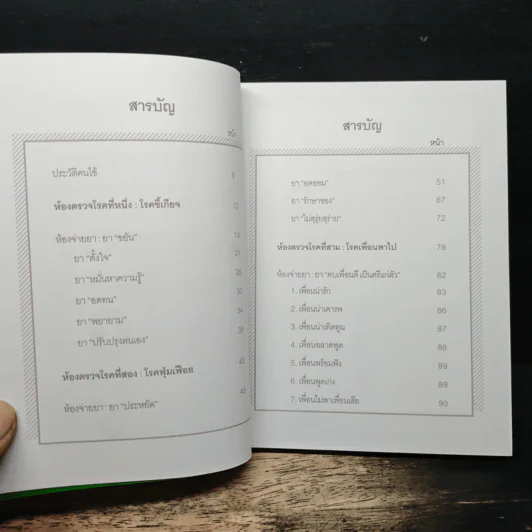 สารบัญ
หน้า
ประวัติคนไข้ 8
ห้องตรวจโรคที่หนึ่ง : โรคขี้เกียจ 12
ห้องจ่ายยา : ยา "ขยัน" 14
ยา "ตั้งใจ" 21
ยา "หมั่นหาความรู้" 26
ยา "อดทน" 30
ยา "พยายาม" 34
ยา "ปรับปรุงตนเอง" 38
ห้องตรวจโรคที่สอง : โรคฟุ่มเฟือย 42
ห้องจ่ายยา : ยา "ประหยัด" 45
สารบัญ
หน้า
ยา "อดออม" 51
ยา "รักษาของ" 67
ยา "ไม่สุรุ่ยสุร่าย" 72
ห้องตรวจโรคที่สาม : โรคเพื่อนพาไป 78
ห้องจ่ายยา : ยา "คบเพื่อนดี เป็นศรีแก่ตัว" 82
1. เพื่อนน่ารัก 83
2. เพื่อนน่าเคารพ 86
3. เพื่อนน่าเทิดทูน 87
4. เพื่อนฉลาดพูด 88
5. เพื่อนพร้อมฟัง 89
6. เพื่อนพูดเก่ง 89
7. เพื่อนไม่พาเพื่อนเสีย 90